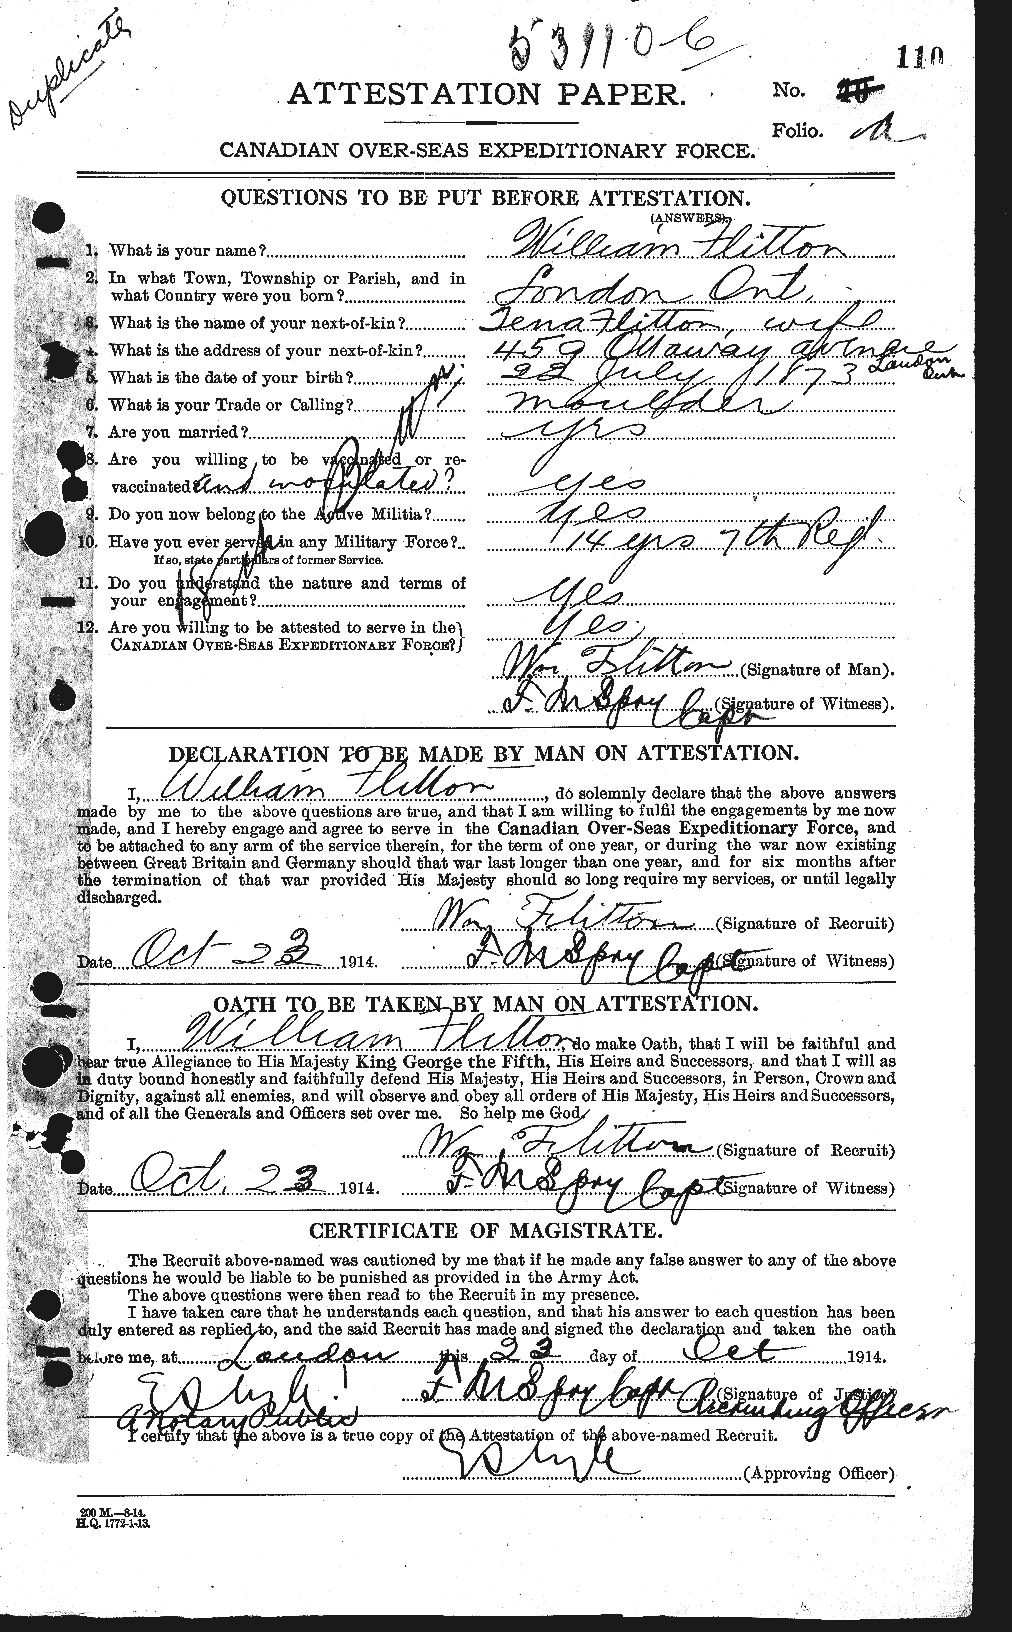 Duplicate
531106
110
ATTESTATION PAPER.
No.
Folio.
CANADIAN OVER-SEAS EXPEDITIONARY FORCE.
QUESTIONS TO BE PUT BEFORE ATTESTATION.
(ANSWERS).
1. What is your name? William Flitton
2. In what Town, Township or Parish, and in
what Country were you born? London Ont.
3. What is the name of your next-of-kin? Tena Flitton, wife
4. What is the address of your next-of-kin? 459 Ottaway avenue
London Ont
5. What is the date of your birth? 22 July 1873
6. What is your Trade or Calling? moulder
7. Are you married? yes
8. Are you willing to be vaccinated or re-
vaccinated and inoculated? yes
9. Do you now belong to the Active Militia? yes
10. Have you ever served in any Military Force? 14 yrs 7th Reg.
If so, state particulars of former Service.
11. Do you understand the nature and terms of
your engagement? yes
12. Are you willing to be attested to serve in the
CANADIAN OVER-SEAS EXPEDITIONARY FORCE? Yes.
Wm Flitton (Signature of Man).
(Signature of Witness). Capt
DECLARATION TO BE MADE BY MAN ON ATTESTATION.
I, William Flitton, do solemnly declare that the above answers
made by me to the above questions are true, and that I am willing to fulfil the engagements by me now
made, and I hereby engage and agree to serve in the Canadian Over-Seas Expeditionary Force, and
to be attached to any arm of the service therein, for the term of one year, or during the war now existing
between Great Britain and Germany should that war last longer than one year, and for six months after
the termination of that war provided His Majesty should so long require my services, or until legally
discharged.
Wm Flitton (Signature of Recruit)
Date Oct 23 1914. Capt (Signature of Witness)
OATH TO BE TAKEN BY MAN ON ATTESTATION.
I, William Flitton, do make Oath, that I will be faithful and
bear true Allegiance to His Majesty King George the Fifth, His Heirs and Successors, and that I will as
in duty bound honestly and faithfully defend His Majesty, His Heirs and Successors, in Person, Crown and
Dignity, against all enemies, and will observe and obey all orders of His Majesty, His Heirs and Successors,
and of all the Generals and Officers set over me. So help me God.
Wm Flitton (Signature of Recruit)
Date Oct. 23 1914. Capt (Signature of Witness)
CERTIFICATE OF MAGISTRATE.
The Recruit above-named was cautioned by me that if he made any false answer to any of the above
questions he would be liable to be punished as provided in the Army Act.
The above questions were then read to the Recruit in my presence.
I have taken care that he understands each question, and that his answer to each question has been
duly entered as replied to, and the said Recruit has made and signed the declaration and taken the oath
before me, at London this 23 day of Oct 1914.
Capt Recruiting Officer (Signature of Justice)
A Notary Public
I certify that the above is a true copy of the Attestation of the above-named Recruit.
(Approving Officer)
200 M.—8-14.
H.Q. 1772-1-13.